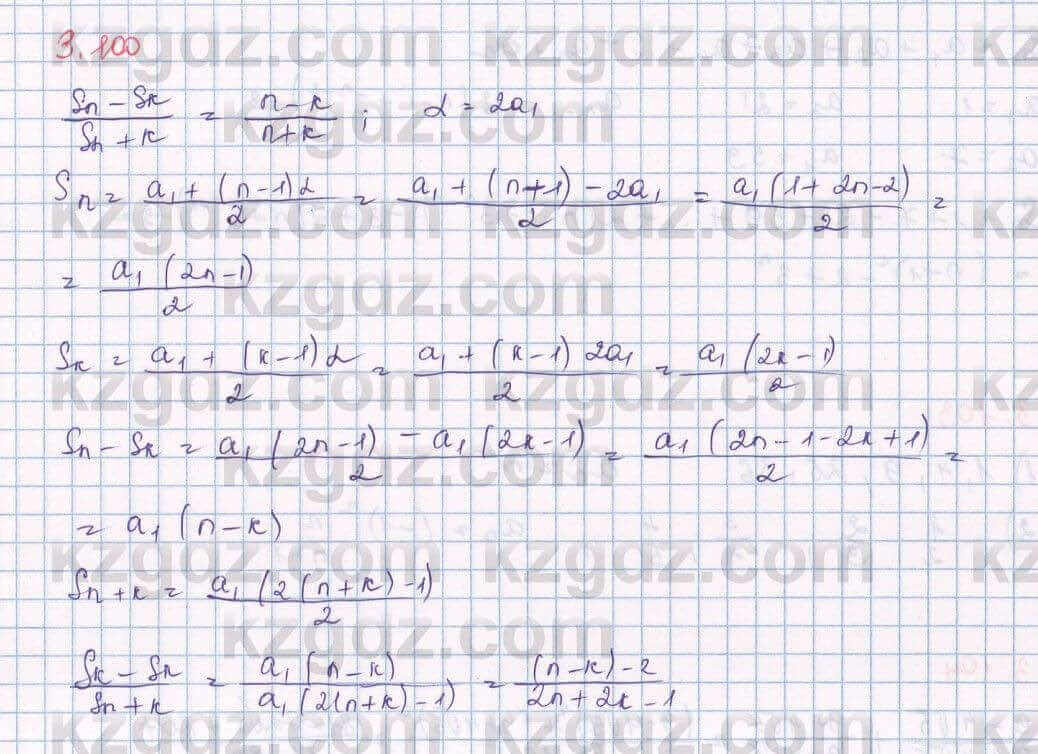 3.100
(Sn - Sk)/(Sn+k) = (n-k)/(n+k) ; d = 2a₁
Sn = (a₁ + (n-1)d)/2 = (a₁ + (n+1) - 2a₁)/2 = (a₁(1 + 2n-2))/2 =
= (a₁(2n-1))/2
Sk = (a₁ + (k-1)d)/2 = (a₁ + (k-1)2a₁)/2 = (a₁(2k-1))/2
Sn - Sk = (a₁(2n-1) - a₁(2k-1))/2 = (a₁(2n-1-2k+1))/2 =
= a₁(n-k)
Sn+k = (a₁(2(n+k)-1))/2
(Sk - Sk)/(Sn+k) = (a₁(n-k))/(a₁(2(n+k)-1)) = ((n-k)-2)/(2n+2k-1)
kzgdz.com